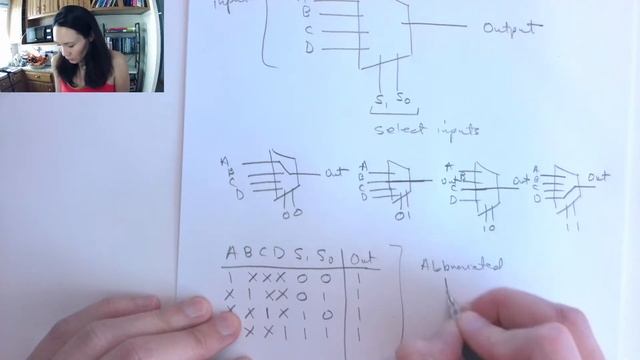 Inputs
A
B
C
D
Output
S1 S0
Select inputs
A
B
C
D
Out
00
A
B
C
D
Out
01
A
B
C
D
Out
10
A
B
C
D
Out
11
A B C D S1 S0 Out
1 X X X 0 0 1
X 1 X X 0 1 1
X X 1 X 1 0 1
X X 1 1 1 1
Abbreviated